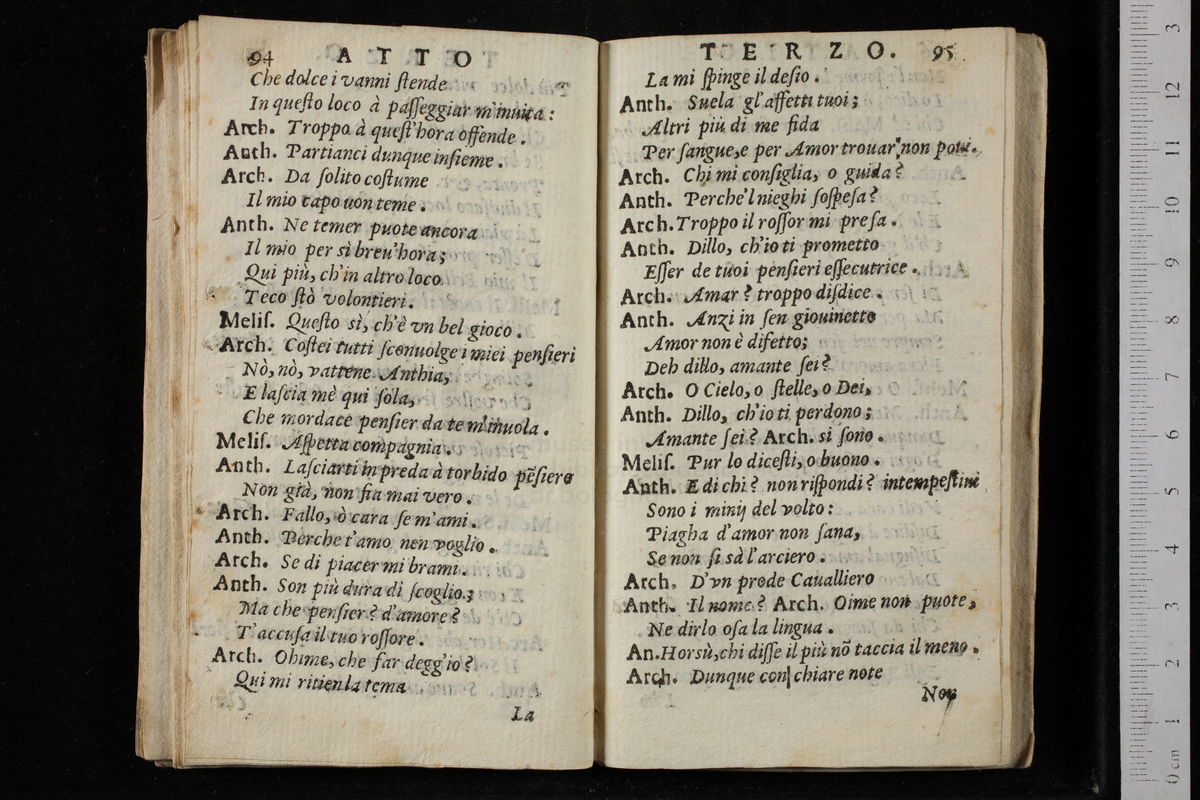 94 ATTO
Che dolce i vanni ſtende
In queſto loco à paſſeggiar m'inuita :
Arch. Troppo à queſt'hora offende .
Anth. Partianci dunque inſieme .
Arch. Da ſolito coſtume
Il mio capo uon teme .
Anth. Ne temer puote ancora
Il mio per sì breu'hora;
Qui più, ch'in altro loco
Teco ſtò volontieri .
Meliſ. Queſto sì, ch'è vn bel gioco .
Arch. Coſtei tutti ſconuolge i miei penſieri
Nò, nò, vattene Anthia,
E laſcia mè qui ſola,
Che mordace penſier da te m'inuola .
Meliſ. Aſpetta compagnia .
Anth. Laſciarti in preda à torbido pẽſiero
Non già, non fia mai vero .
Arch. Fallo, ò cara ſe m'ami .
Anth. Perche t'amo nen voglio .
Arch. Se di piacer mi brami .
Anth. Son più dura di ſcoglio ;
Ma che penſier? d'amore?
T'accuſa il tuo roſſore .
Arch. Ohime, che far degg'io?
Qui mi ritien la tema
La
TERZO. 95
La mi ſpinge il deſio .
Anth. Suela gl'affetti tuoi;
Altri più di me fida
Per ſangue, e per Amor trouar non poi.
Arch. Chi mi conſiglia, o guida?
Anth. Perche'l nieghi ſoſpeſa?
Arch. Troppo il roſſor mi preſa .
Anth. Dillo, ch'io ti prometto
Eſſer de tuoi penſieri eſſecutrice .
Arch. Amar? troppo diſdice .
Anth. Anzi in ſen giouinetto
Amor non è difetto;
Deh dillo, amante ſei?
Arch. O Cielo, o ſtelle, o Dei,
Anth. Dillo, ch'io ti perdono;
Amante ſei? Arch. si ſono .
Meliſ. Pur lo diceſti, o buono .
Anth. E di chi? non riſpondi? intempeſtiui
Sono i minij del volto :
Piagha d'amor non ſana,
Se non ſi sà l'arciero .
Arch. D'vn prode Caualliero
Anth. Il nome? Arch. Oime non puote,
Ne dirlo oſa la lingua .
An. Horsù, chi diſſe il più nõ taccia il meno .
Arch. Dunque con chiare note
Non